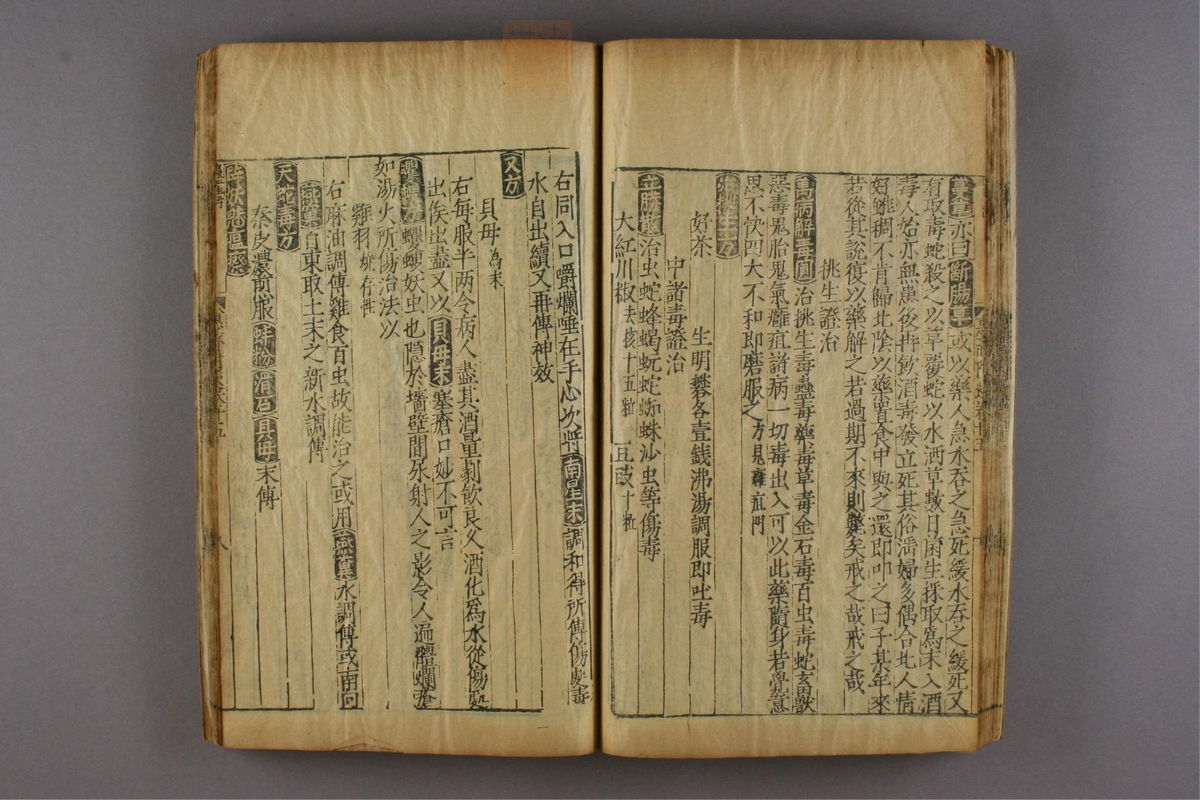 蔓亦曰斷腸草或以藥人急水吞之急死緩水吞之緩死又
有取毒蛇殺之以草覆蛇以水洒草數日菌生採取爲末入酒
毒人始亦無患後再飲酒毒發立死其俗淫婦多偶合北人情
好雖稠不肯歸北陰以藥置食中與之還即叩之曰子某年來
若從其說復以藥解之若過期不來則斃矣戒之哉戒之哉
挑生證治
萬病解毒圓治挑生毒蠱毒藥毒草毒金石毒百虫毒蛇玄獸
惡毒鬼胎鬼氣癰疽諸病一切毒出入可以此藥隨身若覺意
思不快四大不和即磨服之方見癰疽門
挑生方
好茶 生明礬各壹錢沸湯調服即吐毒
中諸毒證治
立勝散治虫蛇蜂蝎蚖蛇蜘蛛沙虫等傷毒
大紅川椒去核十五粒 豆豉十粒
右同入口嚼爛唾在手心次將南星末調和得所傅傷處毒
水自出續又再傅神效
又方
貝母為末
右每服半两令病人盡其酒量劇飲良久酒化爲水從傷處
出俟出盡又以貝母末塞瘡口妙不可言
蠼螋方蠼螋妖虫也隱於墻壁間尿射人之影令人遍體爛瘡
如湯火所傷治法以
雞羽燒存性
右麻油調傅雞食百虫故能治之或用燕窠水調傅或南向
燕窠自東取土末之新水調傅
天蛇毒方
秦皮濃煎服蛤粉滑石貝母末傅